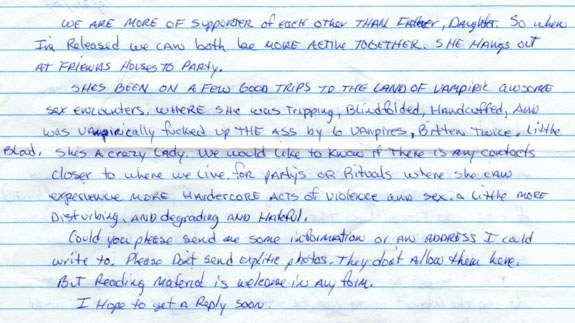 WE ARE MORE OF Supporter of each other THAN Father, Daughter. So when
I'm Released we can both be MORE Active TOGETHER. SHE HANGS out
AT FRIENDS HOUSES TO PARTY.
SHES BEEN ON A FEW GOOD TRIPS TO THE LAND OF VAMPIRIC AWSOME
sex encounters. WHERE SHE was Tripping, Blindfolded, Handcuffed, AND
was VAmpirically fucked up THE ASS by 6 VAMPIRES, Bitten Twice, Little
Blod. Shes A crazy LADY. We would like to know if THERE is Any contacts
closer to where we Live. for partys OR Rituals where she can
experience MORE HARDERCORE ACTS of violence and sex. A Little MORE
Disturbing, AND degrading AND Hateful.
Could you please send me some information or AN ADDRESS I could
write to. Please Don't send explitie photos. They don't Allow them here.
But Reading Material is welcome in Any form.
I Hope to get A Reply soon.